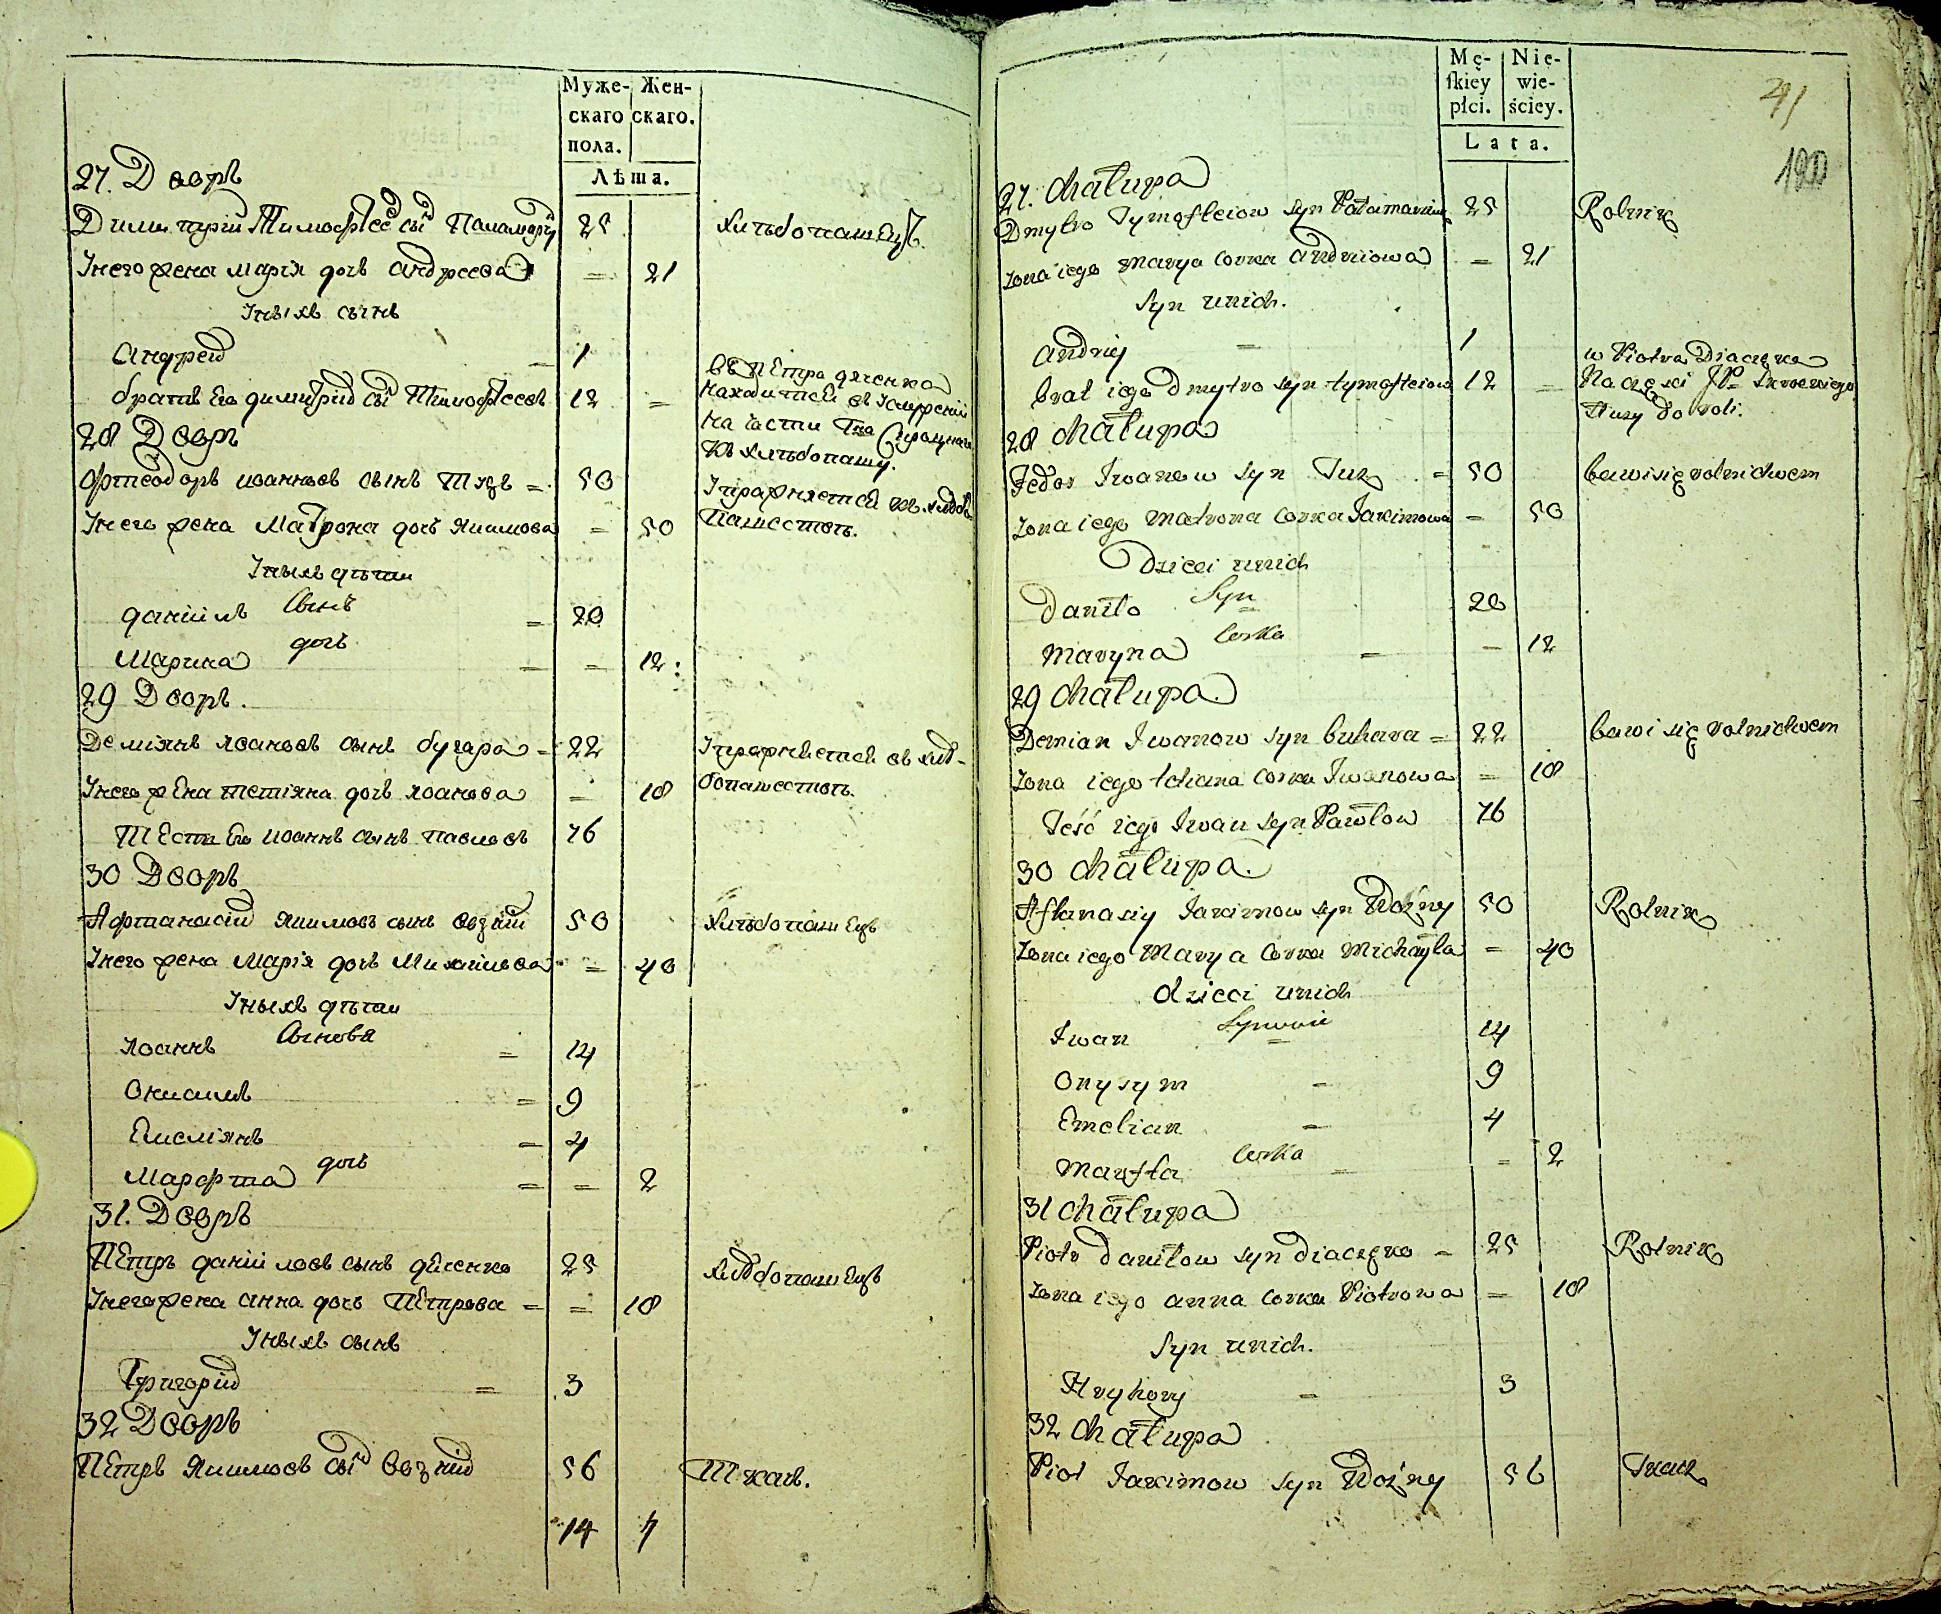 Муже-
скаго
пола.
Жен-
скаго.
Лѣта.
27. Дворъ
Димитрій Тимофѣевъ сы͞ Паламарь 25 хлѣбопашецъ.
У него жена Марія дочь Андреева = 21
У нихъ сынъ
Андрей = 1
братъ Его Димитрій сы͞ Тимофѣевъ 12 =
въ Петра дяченка
находится въ
на части
къ хлѣбопашу.
28 Дворъ
Фтеодоръ Иоанновъ сынъ Тузъ = 50
У него жена Матрона дочь Якимова = 50
Упражняется въ хлѣбо
пашествѣ.
У нихъ дѣти
Даніилъ сынъ = 20
Марина дочь = = 12
29 Дворъ.
Деміянъ Иоановъ сынъ бугара = 22 Упражняется въ хлѣб-
У него жена Тетіяна дочь Иоанова = 18 бопашествѣ.
Тесть Его Иоаннъ сынъ Павловъ 76
30 Дворъ
Афтанасій Якимовъ сынъ Возній 50 хлѣбопашецъ
У него жена Марія дочь Михайлова = 40
У нихъ дѣти
Иоаннъ Сыновя = 14
Онисимъ = 9
Емеліянъ = 4
Марфта дочь = = 2
31. Дворъ
Петръ Даніиловъ сынъ дяченко 25 хлѣбопашецъ
У него жена Анна дочь Петрова = = 18
У нихъ сынъ
Григорій = 3
32 Дворъ
Петръ Якимовъ сы͞ Возній 56 Ткачъ.
14 7
Mę-
skiey
płci.
Nie-
wie-
ściey.
Lata.
41
120
27. chałupa
Dmytro Tymofteiow syn Pałamaru 25 Rolnik
żona iego Marya corka Andriiowa = 21
Syn u nich.
Andriy = 1
brat iego Dmytro syn tymofteiow 12 =
w Piotra Diaczęka
Na części
słuzy do roli.
28 chałupa
Fedor Iwanow syn Tuz = 50 bawi się rolnictwem
żona iego Matrona corka Jakimowa = 50
Dzieci u nich
Daniło Syn = 20
Maryna Corka = = 12
29 chałupa
Demian Iwanow syn buhara = 22 bawi się rolnictwem
żona iego tetiana corka Iwanowa = 18
Teść iego Iwan syn Pawłow 76
30 chałupa.
Aftanasiy Jakimow syn Woźny 50 Rolnik
żona iego Marya corka Michayła = 40
dzieci u nich
Iwan Synowie = 14
Onysym = 9
Emelian = 4
Marfta Corka = = 2
31 chałupa
Piotr Daniłow syn diaczęko = 25 Rolnik
żona iego anna corka Piotrowa = 18
Syn u nich.
Hryhory = 3
32 chałupa
Piot Jakimow syn Woźny 56 Tkacz